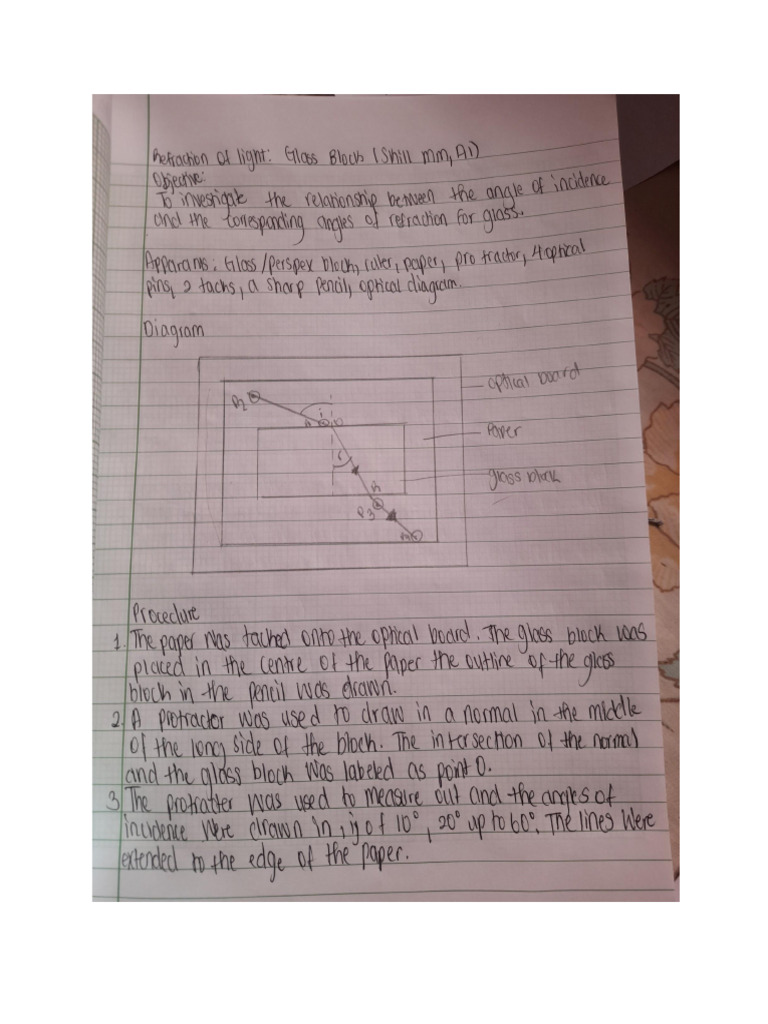 Refraction of light: Glass Block (Skill mm, A1)
Objective:
To investigate the relationship between the angle of incidence
and the corresponding angles of refraction for glass.
Apparatus: Glass/perspex block, ruler, paper, protractor, 4 optical
pins, 2 tacks, a sharp pencil, optical diagram.
Diagram
optical board
P2
i
O
Paper
r
glass block
P3
Procedure
1. The paper was tacked onto the optical board. The glass block was
placed in the centre of the paper the outline of the glass
block in the pencil was drawn.
2. A protractor was used to draw in a normal in the middle
of the long side of the block. The intersection of the normal
and the glass block was labeled as point O.
3 The protracter was used to measure out and the angles of
incidence were drawn in, of 10°, 20° up to 60°. The lines were
extended to the edge of the paper.